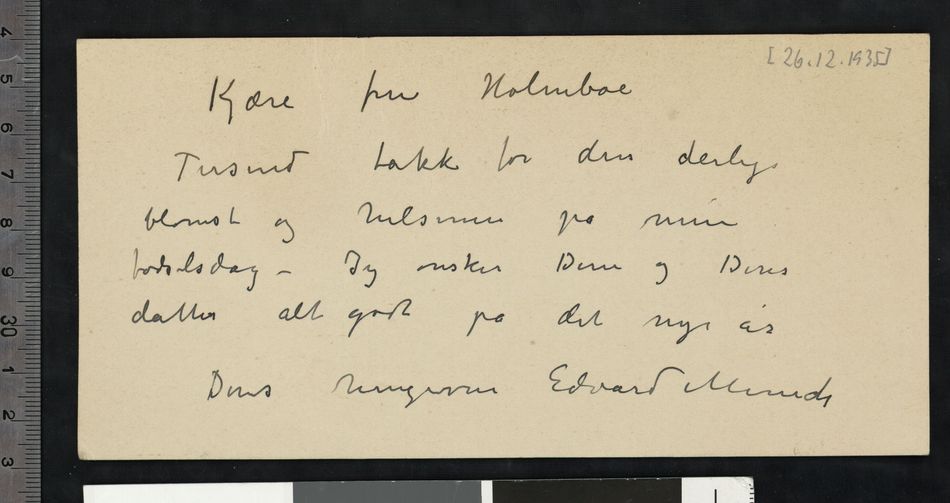 [26.12.1935]
Kjære fru Holmboe
Tusind takk for den deilige
blomst og hilsenen på min
fødselsdag – Jeg ønsker Dem og Deres
datter alt godt på det nye år
Deres hengivne Edvard Munch